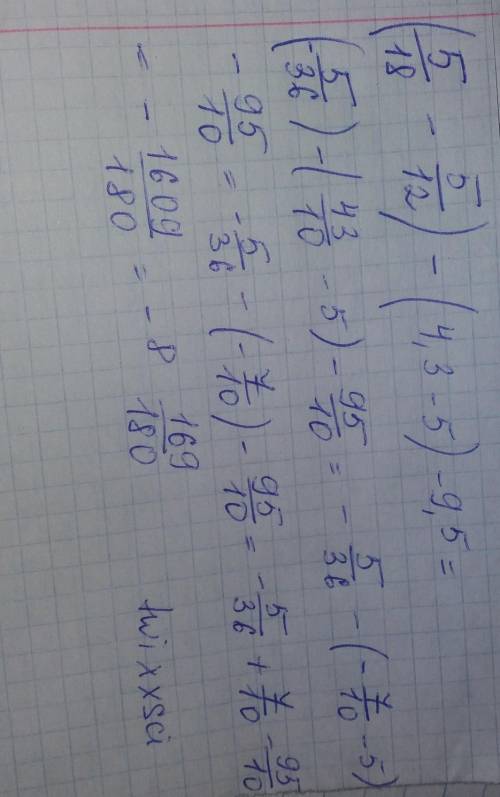 (5/18 - 5/12) - (4,3 - 5) - 9,5 =
(-5/36) - (43/10 - 5) - 95/10 = - 5/36 - (-7/10 - 5)
- 95/10 = - 5/36 - (-7/10) - 95/10 = - 5/36 + 7/10 - 95/10
= - 1609/180 = - 8 169/180